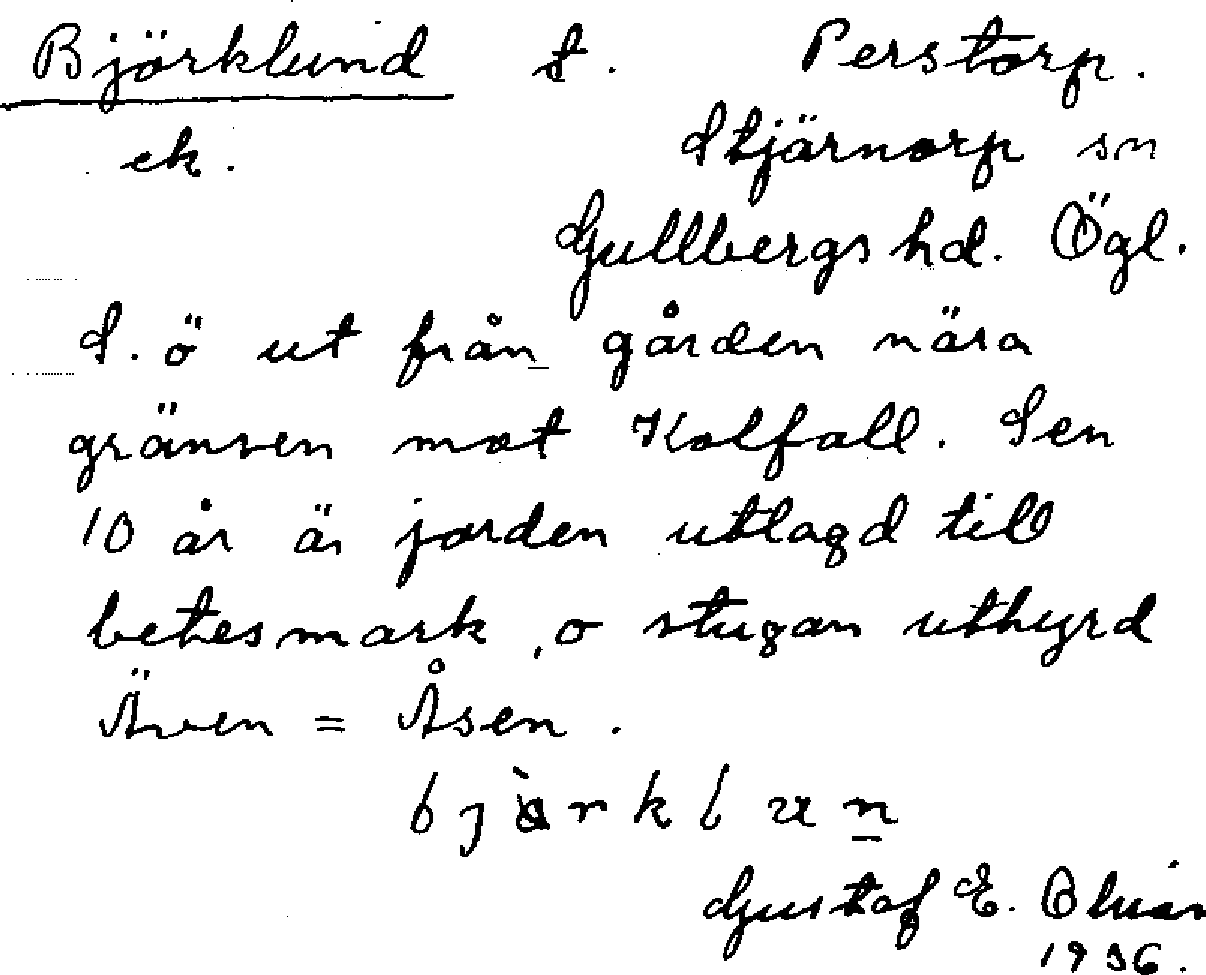 Björklund t. Perstorp.
ek. Stjärnorp sn
Gullbergs hd. Ögl.
S. ö ut från gården nära
gränsen mot Kolfall. Sen
10 år är jorden utlagd till
betesmark, o stugan uthyrd
Även = Åsen.
Gustaf E.
1936.